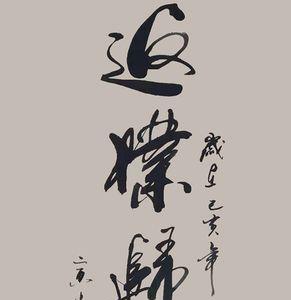 歲在己亥年
返樸歸